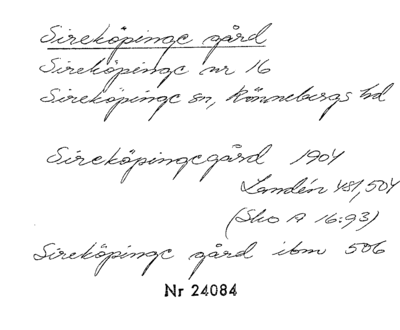 Sireköpinge gård
Sireköpinge nr 16
Sireköpinge sn, Rönnebergs hd
Sireköpingegård 1904
Landén 481,504
(Sko A 16:93)
Sireköpinge gård ibm 506
Nr 24084